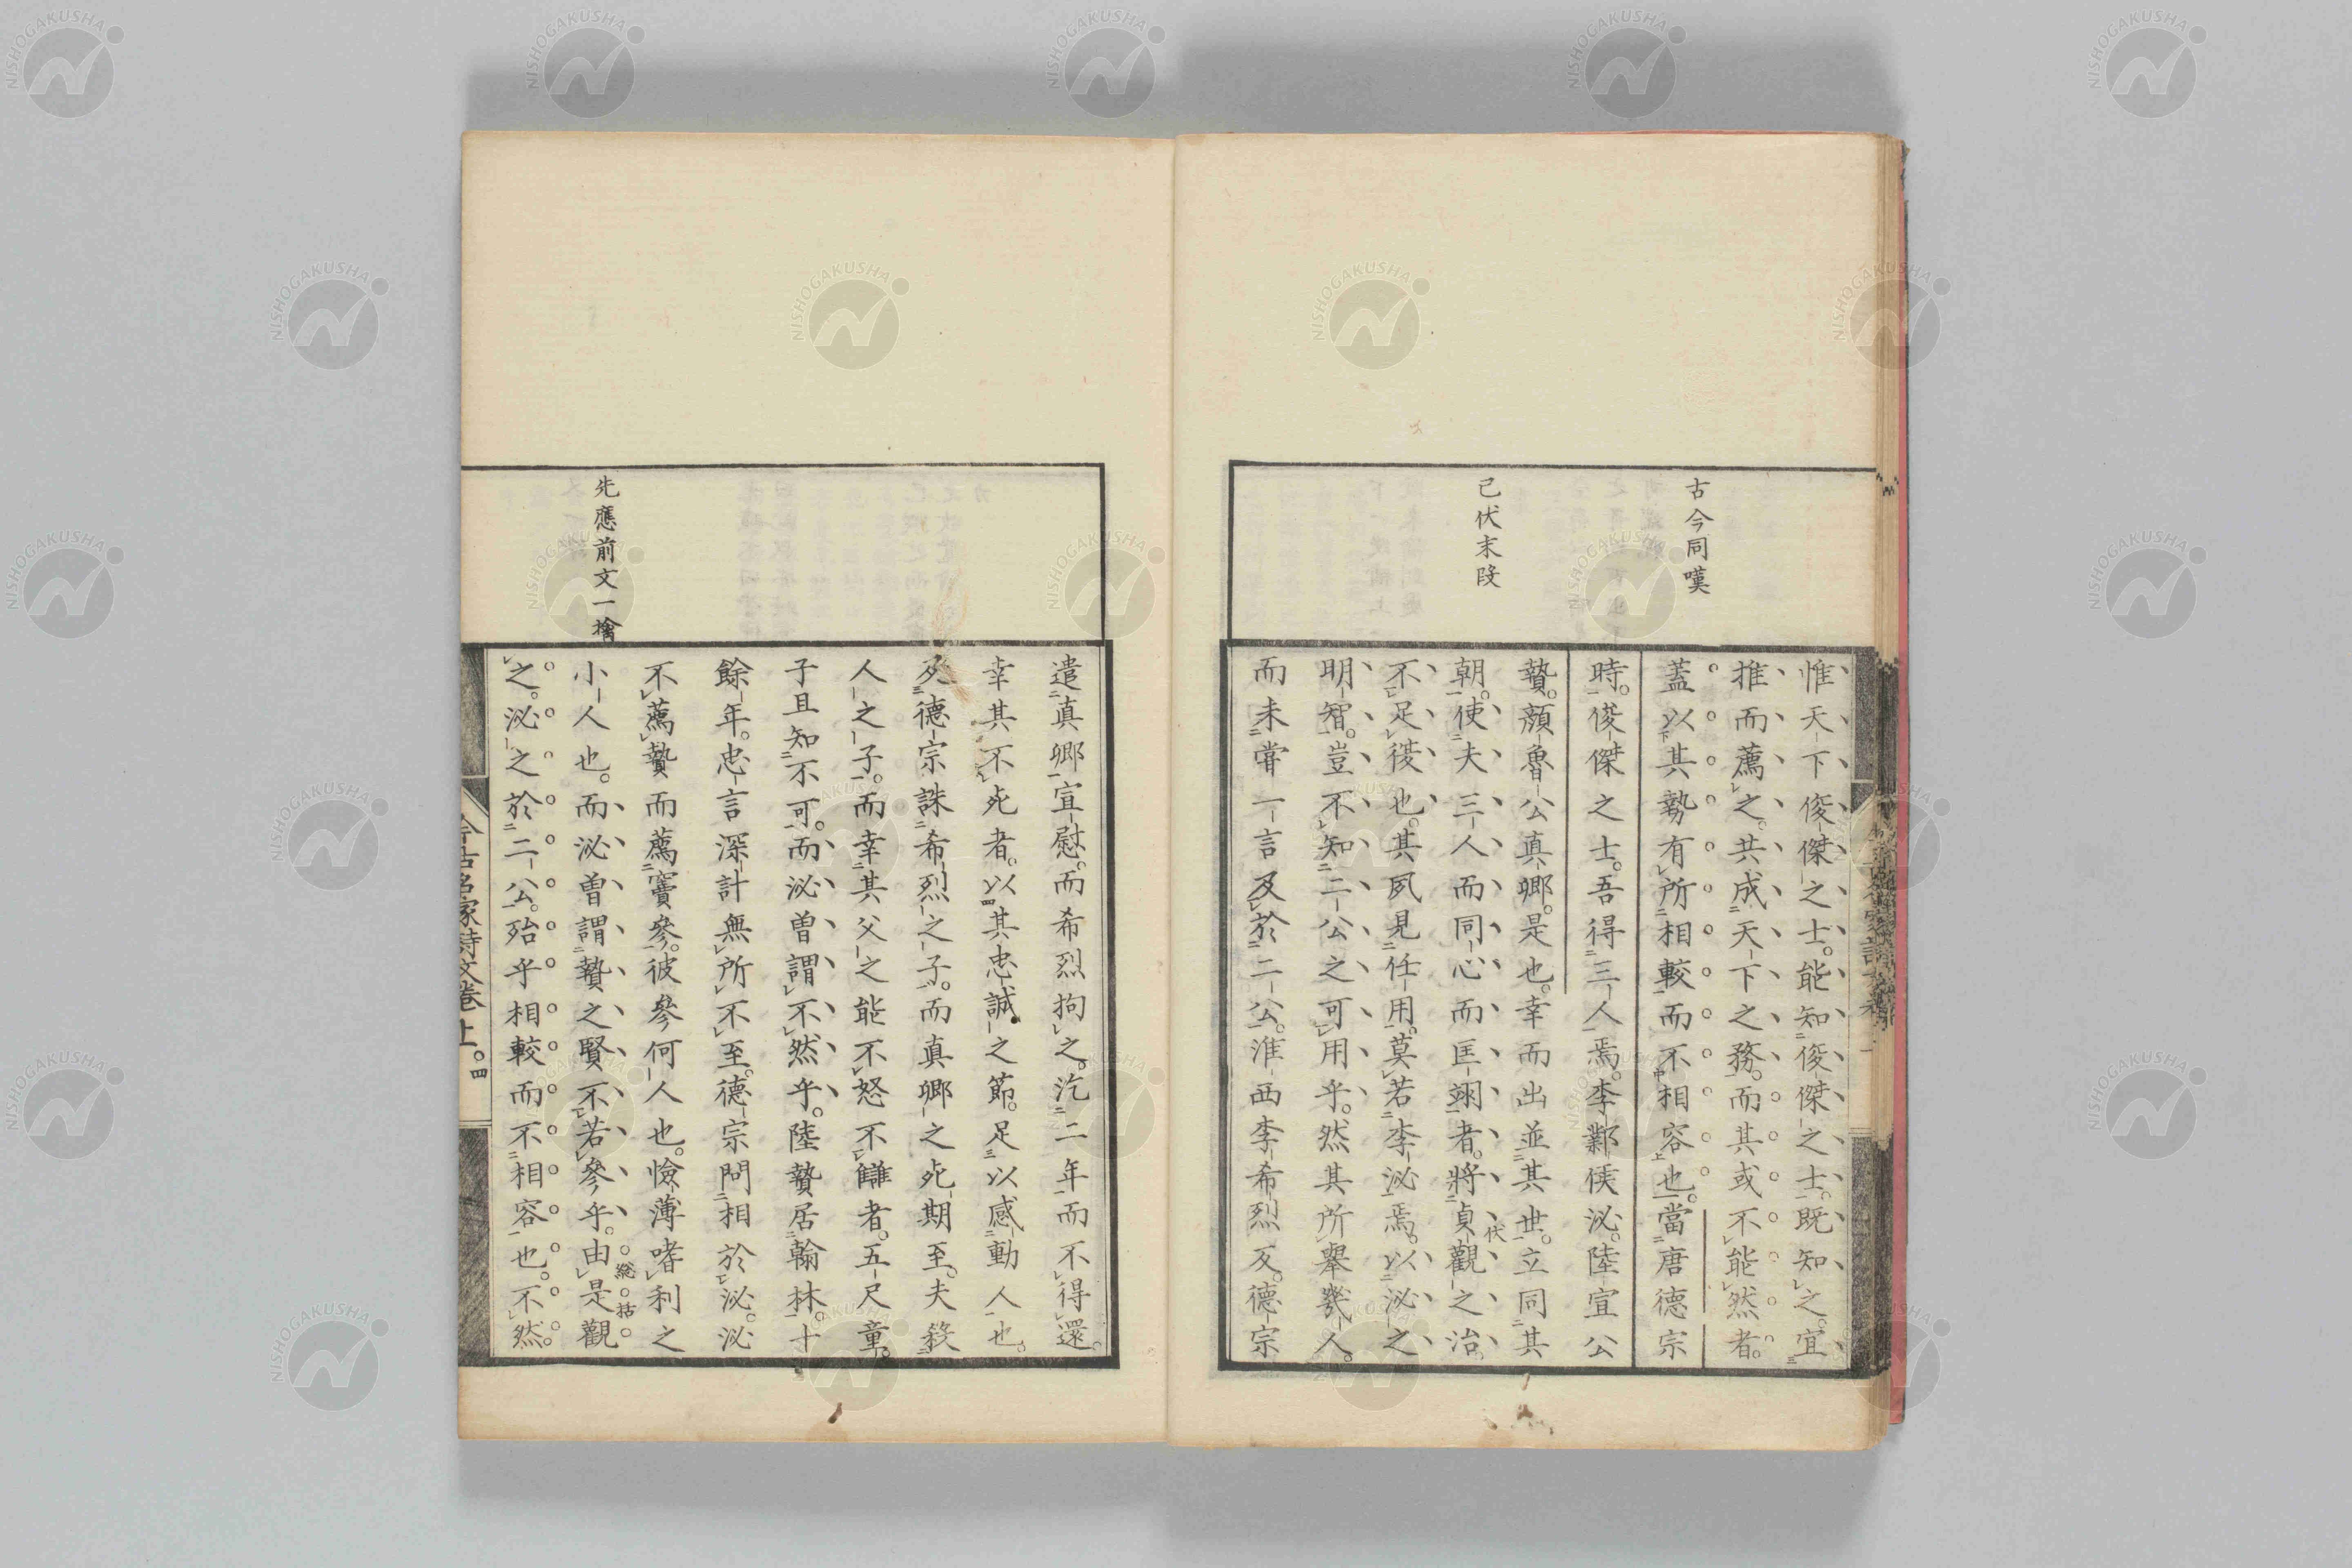 古今同嘆
已伏末段
惟天下俊傑之士。能知俊傑之士。既知之。宜
推而薦之。共成天下之務。而其或不能然者。
蓋以其勢有所相較而不相容也。當唐德宗
時。俊傑之士。吾得三人焉。李鄴侯泌。陸宣公
贄。顏魯公真卿。是也。幸而出並其世。立同其
朝。使夫三人而同心而匡翊者。將貞觀之治。
伏
不足復也。其夙見任用。莫若李泌焉。以泌之
明智。豈不知二公之可用乎。然其所舉幾人。
而未嘗一言及於二公。淮西李希烈反。德宗
先應前文一擒
遣真卿宣慰。而希烈拘之。汔二年而不得還。
幸其不死者。以其忠誠之節。足以感動人也。
及德宗誅希烈之子。而真卿之死期至。夫殺
人之子。而幸其父之能不怒不讎者。五尺童
子且知不可。而泌曽謂不然乎。陸贄居翰林。十
餘年。忠言深計無所不至。德宗問相於泌。泌
不薦贄而薦竇參。彼參何人也。憸薄嗜利之
小人也。而泌曽謂贄之賢不若參乎。由是觀
總括
之。泌之於二公。殆乎相較而不相容也。不然
今古名家詩文卷上。四
NISHOGAKUSHA